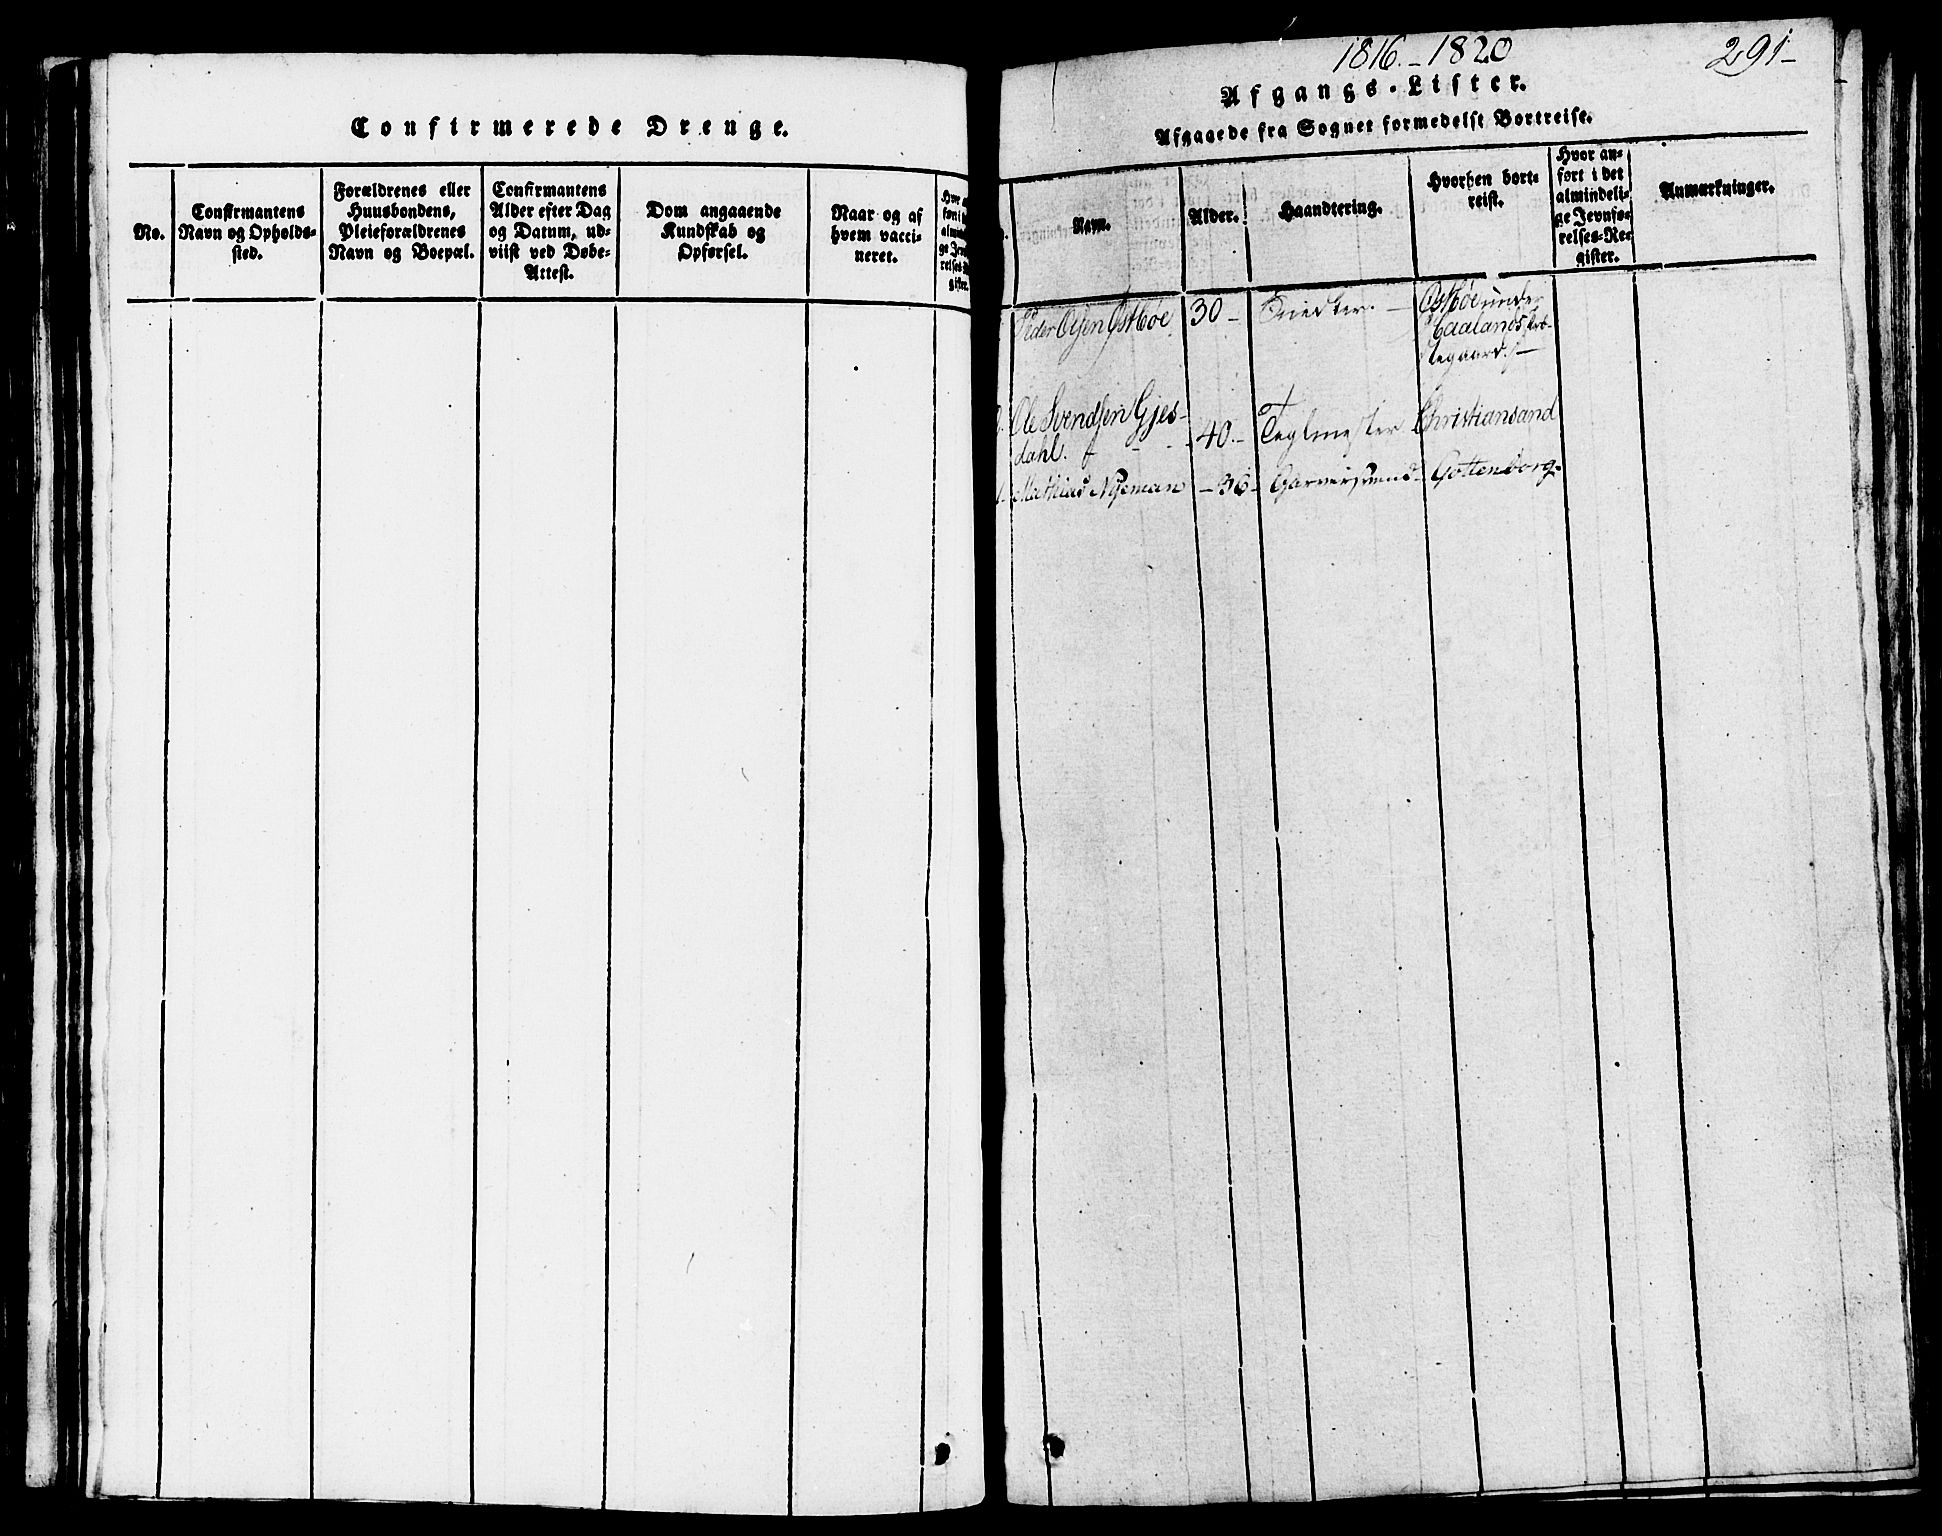 Confirmerede Drenge.
No.
Confirmantens
Navn og Opholds-
sted.
Forældrenes eller
Huusbondens,
Pleieforældrenes
Navn og Boepæl.
Confirmantens
Alder efter Dag
og Datum, ud-
viist ved Døbe-
Attest.
Dom angaaende
Kundskab og
Opførsel.
Naar og af
hvem vacci-
neret.
1816.-1820
291-
Afgangs-Lister.
Afgaaede fra Sognet formedelst Bortreise.
Navn.
Alder.
Haandtering.
Hvorhen bort-
reist.
Hvor an-
ført i det
almindeli-
ge Jevnfø-
relses-Re-
gister.
Anmærkninger.
Peder Olsen Østbøe 30- Snedker. - Østbøe under
Haalands
Ole Svendsen Gjes-
dahl. - - - 40.- Teglmester Christiansand
Mathias Nyeman -36- Garversvend Gottenborg.